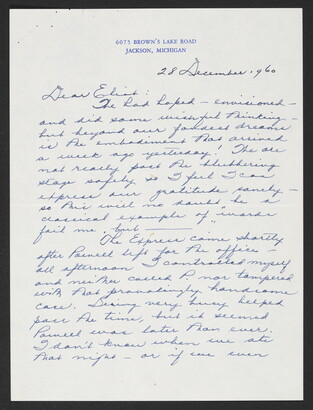 6075 BROWN'S LAKE ROAD
JACKSON, MICHIGAN
28 December, 1960
Dear Eliot:
The had hoped - envisioned -
and did some wishful thinking -
but beyond our fondest dreams
is the embodiment that arrived
a week ago yesterday! The are
not really past the blubbering
stage safely so I feel I can
express our gratitude sanely -
so this will no doubt be a
classical example of "words
fail me, but ———"
The Express came shortly
after Powell left for the office -
all afternoon I controlled myself
and neither called P. nor tampered
with that provokingly handsome
case. Being very busy helped
pass the time, but it seemed
Powell was later than ever.
I don't know when we ate
that night - or if we even